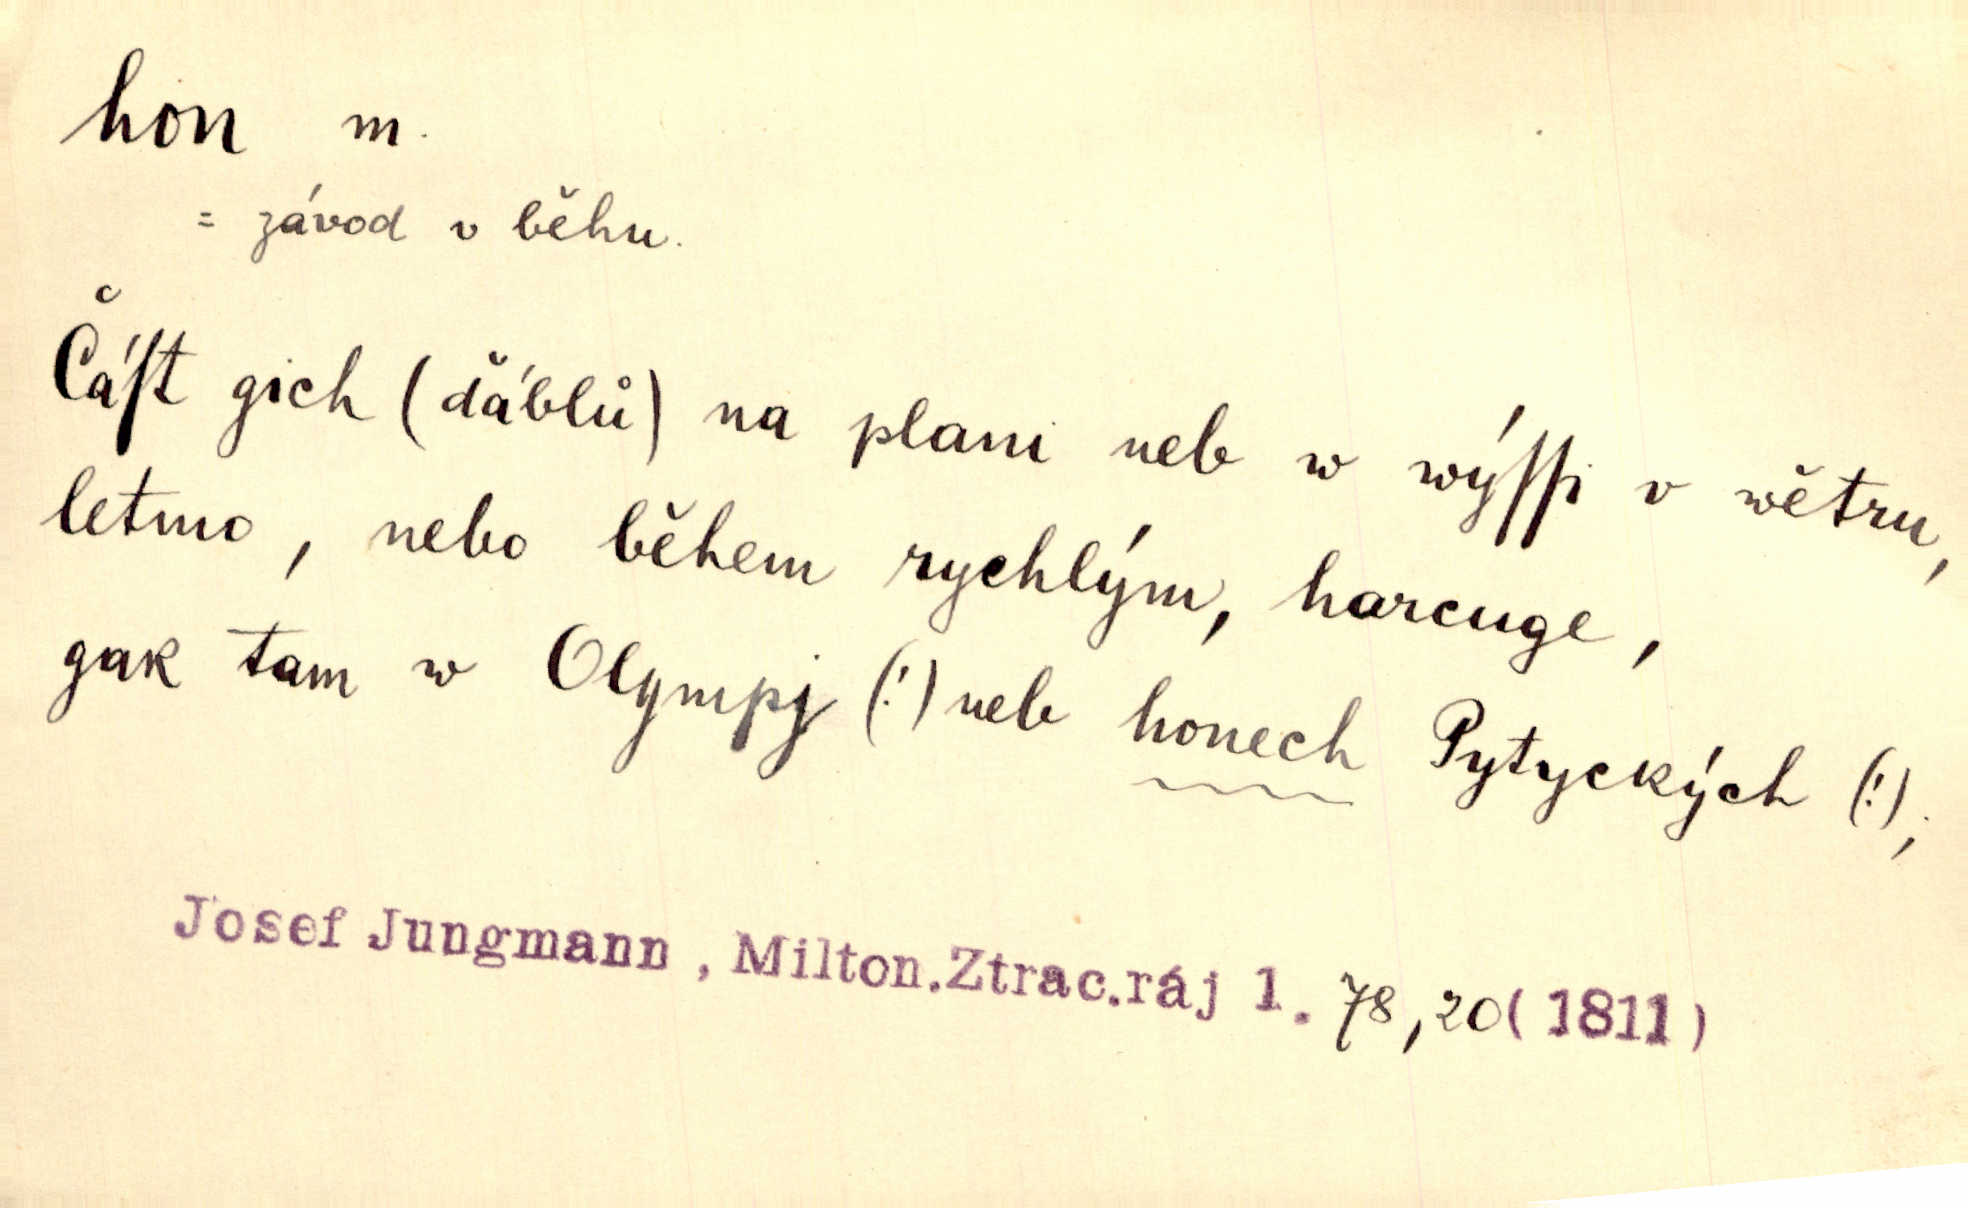 hon m.
= závod v běhu.
Čáſt gich (ďáblů) na plani neb w wýſſi v wětru,
letmo, nebo během rychlým, harcuge,
gak tam w Olympj (!) neb honech Pytyckých (!);
Josef Jungmann, Milton.Ztrac.ráj 1. 78,20(1811)